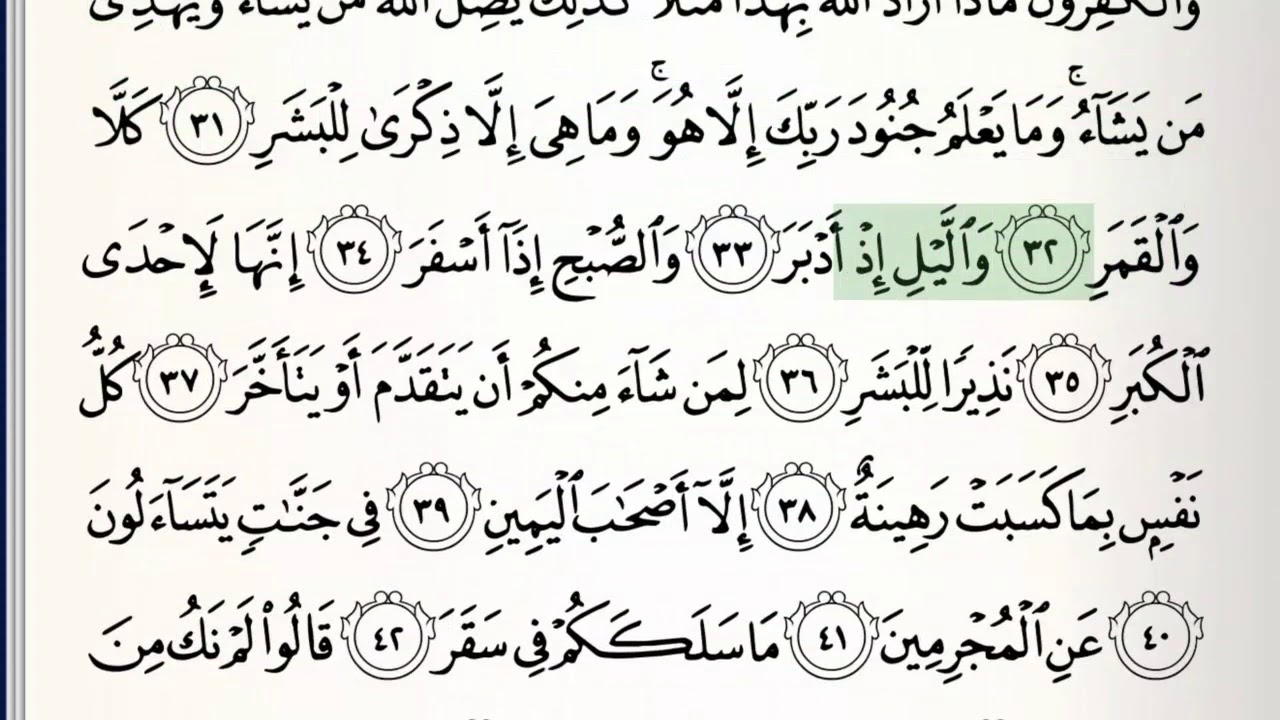 وَٱلْكَٰفِرُونَ مَاذَآ أَرَادَ ٱللَّهُ بِهَٰذَا مَثَلًا كَذَٰلِكَ يُضِلُّ ٱللَّهُ مَن يَشَآءُ وَيَهْدِى
مَن يَشَآءُ ۚ وَمَا يَعْلَمُ جُنُودَ رَبِّكَ إِلَّا هُوَ ۚ وَمَا هِىَ إِلَّا ذِكْرَىٰ لِلْبَشَرِ ٣١ كَلَّا
وَٱلْقَمَرِ ٣٢ وَٱلَّيْلِ إِذْ أَدْبَرَ ٣٣ وَٱلصُّبْحِ إِذَآ أَسْفَرَ ٣٤ إِنَّهَا لَإِحْدَى
ٱلْكُبَرِ ٣٥ نَذِيرًا لِّلْبَشَرِ ٣٦ لِمَن شَآءَ مِنكُمْ أَن يَتَقَدَّمَ أَوْ يَتَأَخَّرَ ٣٧ كُلُّ
نَفْسٍۭ بِمَا كَسَبَتْ رَهِينَةٌ ٣٨ إِلَّآ أَصْحَٰبَ ٱلْيَمِينِ ٣٩ فِى جَنَّٰتٍ يَتَسَآءَلُونَ
٤٠ عَنِ ٱلْمُجْرِمِينَ ٤١ مَا سَلَكَكُمْ فِى سَقَرَ ٤٢ قَالُوا۟ لَمْ نَكُ مِنَ